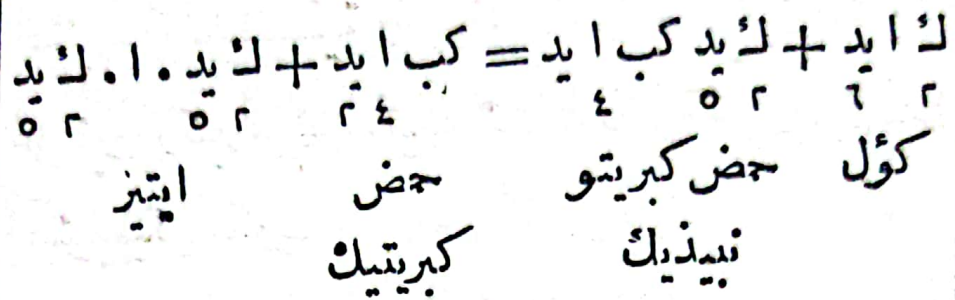 ك ا يد + ك يد كب ا يد = كب ا يد + ك يد . ا . ك يد
٢ ٦ ٢ ٥ ٤ ٤ ٢ ٢ ٥ ٢ ٥
كؤل حمض كبريتو حمض ايتيز
نبيذيك كبريتيك